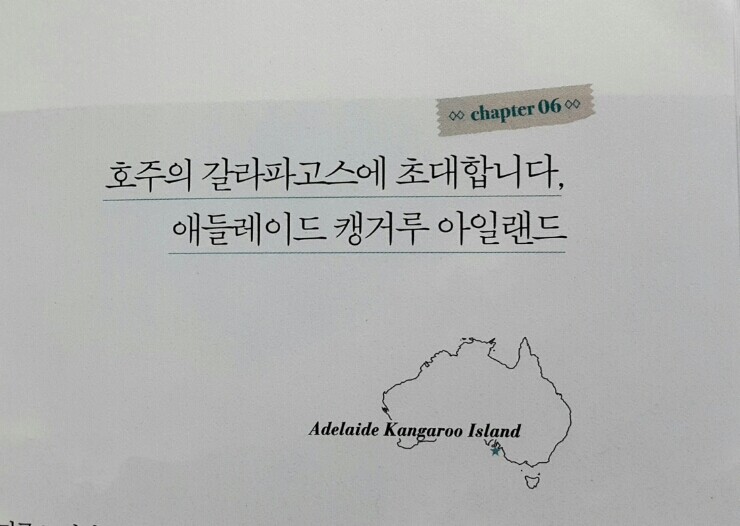 ◇◇ chapter 06 ◇◇
호주의 갈라파고스에 초대합니다,
애들레이드 캥거루 아일랜드
Adelaide Kangaroo Island